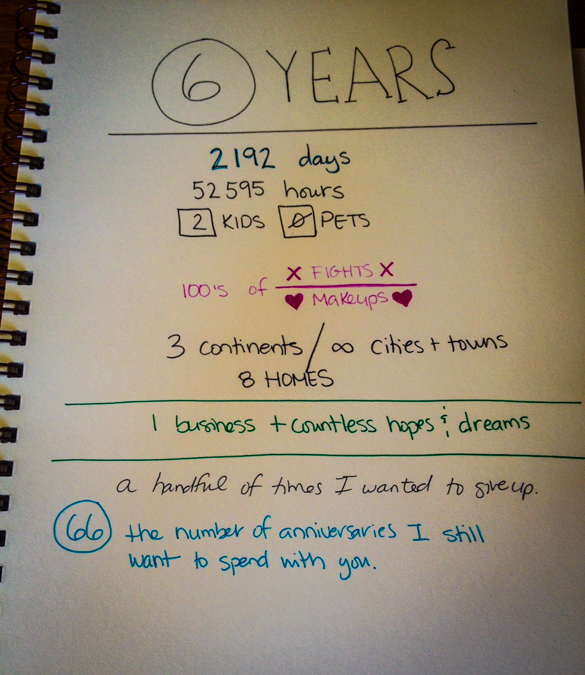 6 YEARS
2192 days
52595 hours
2 KIDS 0 PETS
100's of X FIGHTS X
♥ Makeups ♥
3 continents / ∞ cities + towns
8 HOMES
1 business + countless hopes & dreams
a handful of times I wanted to give up.
66 the number of anniversaries I still
want to spend with you.